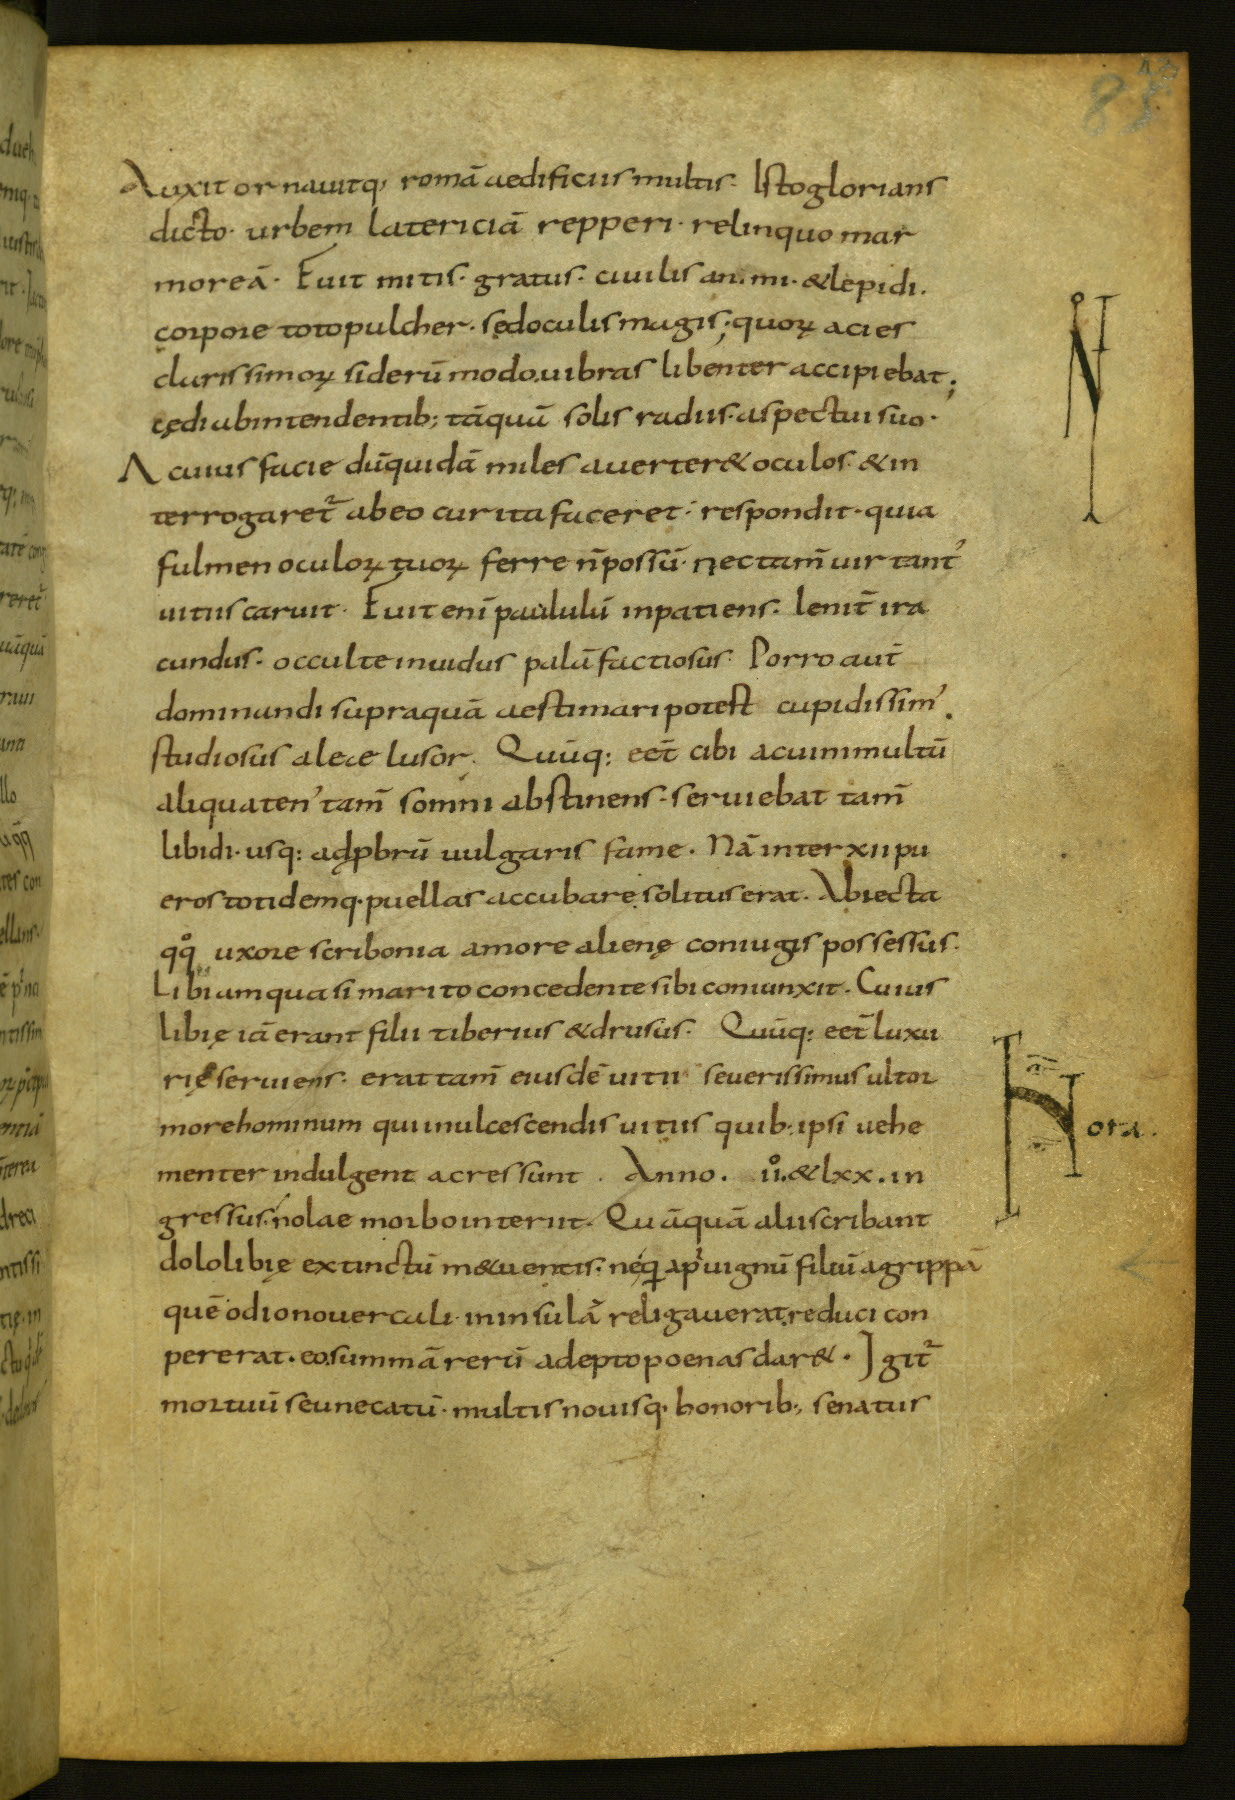 Auxit or nauitq; romā aedificiis multis. Isto glorians
dicto. urbem latericiā repperi. relinquo mar
moreā. Fuit mitis. gratus. ciuilis animi. & lepidi.
corpore toto pulcher. sed oculis magis; quorꝝ acies
clarissimorꝝ siderū modo uibras libenter accipiebat;
cędi ab intendentib; tāquā solis radiis. aspectui suo.
A cuius facie dū quidā miles auerter& oculos. & in
terrogaret᷑ ab eo cur ita faceret. respondit. quia
fulmen oculorꝝ tuorꝝ ferre n̄ possū. nec tam̄ uir tant᾽
uitiis caruit. Fuit enī paululū inpatiens. lenit̄ ira
cundus. occulte inuidus palā factiosus. Porro aut̄
dominandi supra quā aestimari potest cupidissim᾽.
studiosus aleae lusor. Quūq: eēt cibi ac uini multū
aliquaten᾽ tam̄ somni abstinens. seruiebat tam̄
libidi. usq: ad ꝓbrū uulgaris fame. Nā inter xii pu
eros totidemq. puellas accubare solitus erat. Abiecta
qqͦ uxore scribonia amore alienę coniugis possessus.
Libiam quasi marito concedente sibi coniunxit. Cuius
libię iā erant filii tiberius & drusus. Quūq: eēt luxu
rię seruiens. erat tam̄ eiusdē uitii seuerissimus ultor
more hominum qui in ulcescendis uitiis quib; ipsi uehe
menter indulgent acres sunt. Anno. iiͦ. & lxx. in
gressus. nolae morbo interiit. Quāquā alii scribant
dolo libię extinctū m&uentis. neq̨ ap᾽uignū filiū agrippā
quē odio nouercali. in insulā religauerat. reduci con
pererat. eo summā rerū adepto poenas dar&. Igit᷑
mortuū seu necatū. multis nouisq. honorib; senatus
Nota.